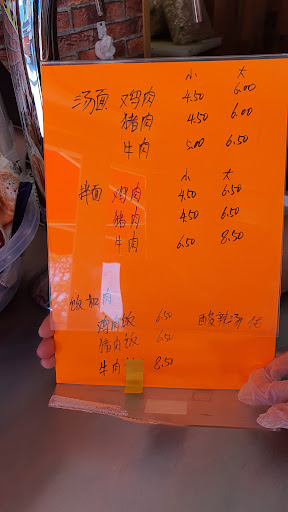 小 大
汤面 鸡肉 4.50 6.00
猪肉 4.50 6.00
牛肉 5.00 6.50
小 大
拌面 鸡肉 4.50 6.50
猪肉 4.50 6.50
牛肉 6.50 8.50
饭 肉
鸡肉饭 6.50
酸辣汤
猪肉饭 6.50
牛肉 8.50